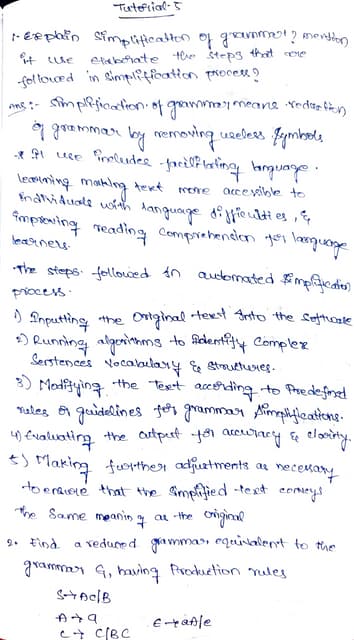 Tutorial-5
1. Explain Simplification of grammar? mention
it use elaborate the steps that are
followed in Simplification process?
Ans:- Simplification of grammar means reduction
of grammar by removing useless Symbols
* It use includes facilitating language
learning making text more accessible to
individuals with language difficulties, &
improving reading comprehension for language
learners.
The steps followed in automated Simplification
process.
1) Inputting the Original text Into the Software
2) Running algorithms to Identify Complex
Sentences Vocabulary & structures.
3) Modifying the Text according to Predefined
rules or guidelines for grammar Simplifications.
4) Evaluating the output for accuracy & clarity
5) Making further adjustments as necessary
to ensure that the simplified text conveys
the Same meaning as the original
2. Find a reduced grammar equivalent to the
grammar G, having Production rules
S→AC/B
A→a
E→aA/e
C→C/BC